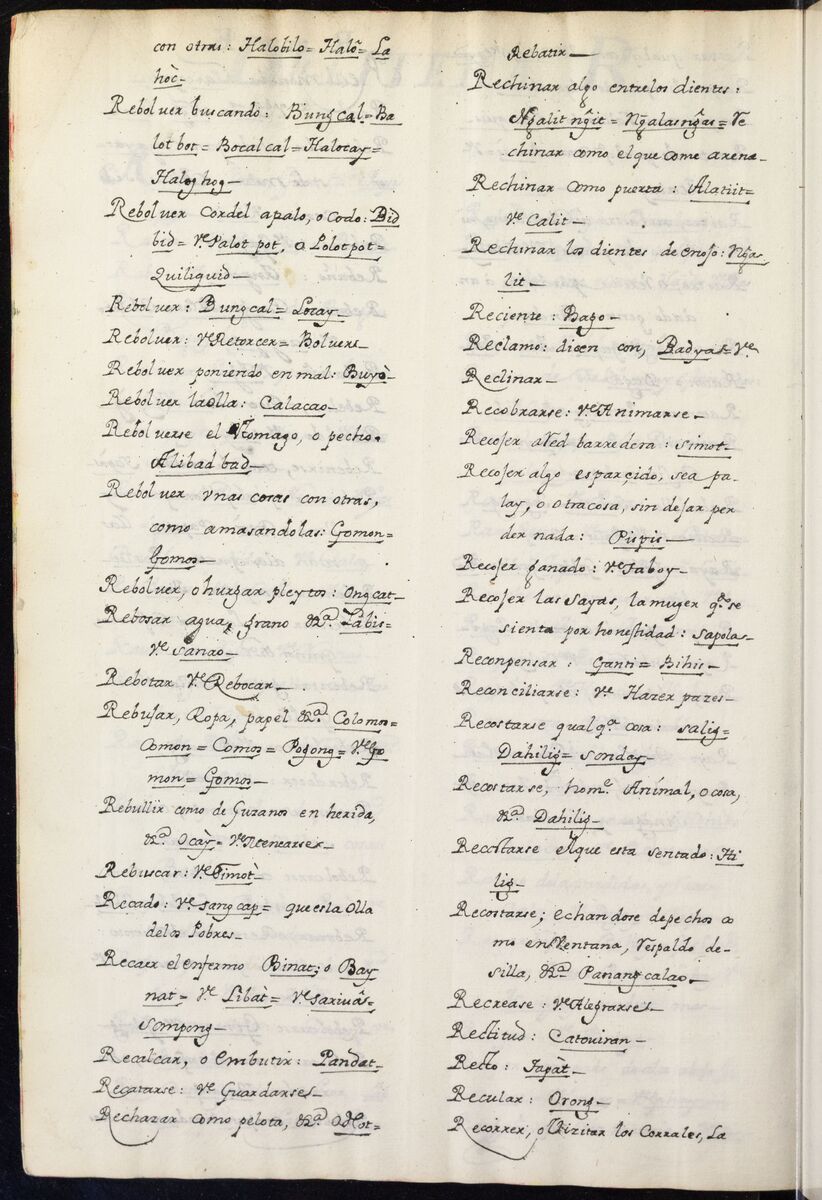 con otras: Halobilo= Halo= La
hòc-
Rebolver buscando: Bungcal= Ba
lotbot= Bocalcal= Halocay=
Haloghog-
Rebolver Cordel apalo, o Codo: Bid
bid= Ve Palotpot, o Polotpot=
Quiliquid-
Rebolver: Bungcal= Locay-
Rebolver: Ve Retorcer= Bolvers-
Rebolver poniendo en mal: Buyò-
Rebolver laolla: Calacao-
Rebolverse el Stomago, o pecho.
Alibadbad-
Rebolver vnas cosas con otras,
como amasandolas: Gomon=
Gomos-
Rebolver, o hurgar pleytos: Ongcat-
Rebosar agua, grano &a. Labis-
Ve Sanao-
Rebotar Ve Rebocar-
Rebujar, Ropa, papel &a. Colomos=
Comon= Comos= Pogong= Ve Go
mon= Gomos-
Rebullir como de Guzanos en herida,
&a Ocày= Ve Menearse-
Rebuscar: Ve Simot-
Recado: Ve Sangcap= que es la olla
delos Pobres-
Recaer el enfermo Binat; o Bay
nat= Ve Libàt= Ve Sariuâs-
Sompong-
Recalcar, o embutir: Pandat-
Recatarse: Ve Guardarse-
Rechazar como pelota, &a.
Rebatir-
Rechinar algo entrelos dientes:
Ng̃alitng̃it= Ng̃alasng̃as= Re
chinar como el que come arena-
Rechinar como puerta: Alatiit=
Ve Calit-
Rechinar los dientes de enojo: Ng̃a
lit-
Reciente: Bago-
Reclamo: dicen con, Badyas= Ve
Reclinar-
Recobrarse: Ve Animarse-
Recojer a Red barredera: Simot-
Recojer algo esparçido, sea pa-
lay, o otra cosa, sin dejar per
der nada: Pispis-
Recojer ganado: Ve Taboy-
Recojer las sayas, la muger qe. se
sienta por honestidad: Sapola-
Reconpensar: Ganti= Bihis-
Reconciliarse: Ve Hazer pazes-
Recostarse qualqa. cosa: Salig=
Dahilig= Sonday-
Recostarse, home. Animal, o cosa,
&a. Dahilig-
Recostarse el que esta sentado: Hi
lig-
Recostarse; echandose depechos co
mo en Ventana, Respaldo de-
silla, &a Panangcalao-
Recrease: Ve Alegrarse-
Rectitud: Catouiran-
Recto: Tapàt-
Recular: Orong-
Recorrer, o Vizitar los Corrales, La